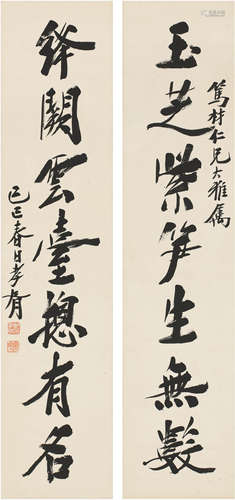 篤材仁兄大雅屬
玉芝紫笋生無數
絳闕雲臺總有名
己巳春日孝胥